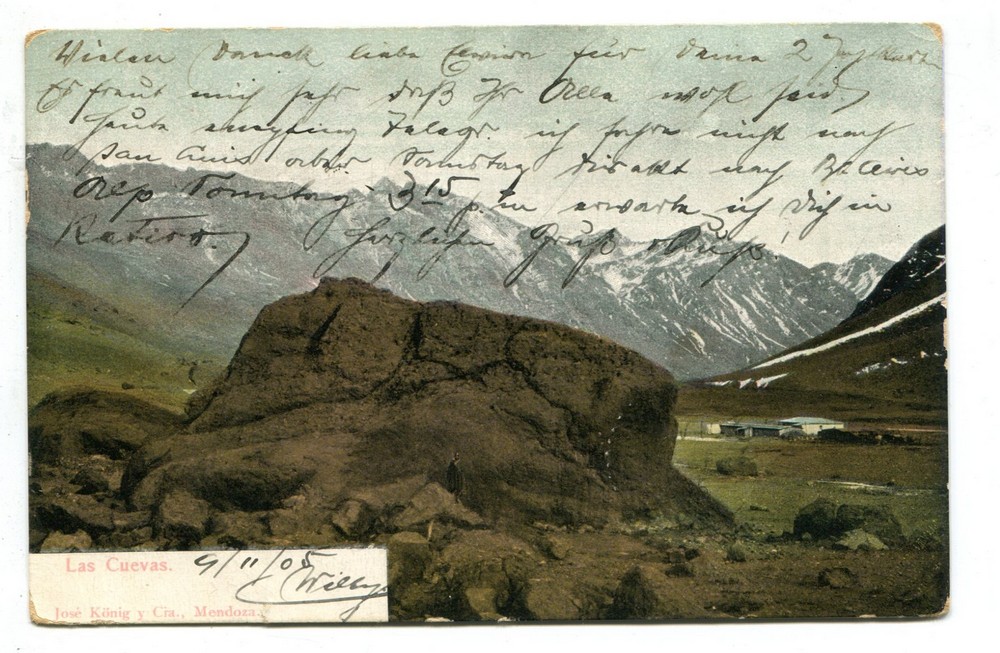 Vielen Danck liebe Elwira für deine 2
Es freut mich sehr daß Ihr Alle wohl seid,
heute empfing Telegr. ich fahre nicht nach
San Luis aber Samstag direkt nach
Alp Sonntag 3 15 p.m erwarte ich Dich in
Retiro.
herzlichen Gruß
Las Cuevas. 9/11/05
Willy
José König y Cia., Mendoza.